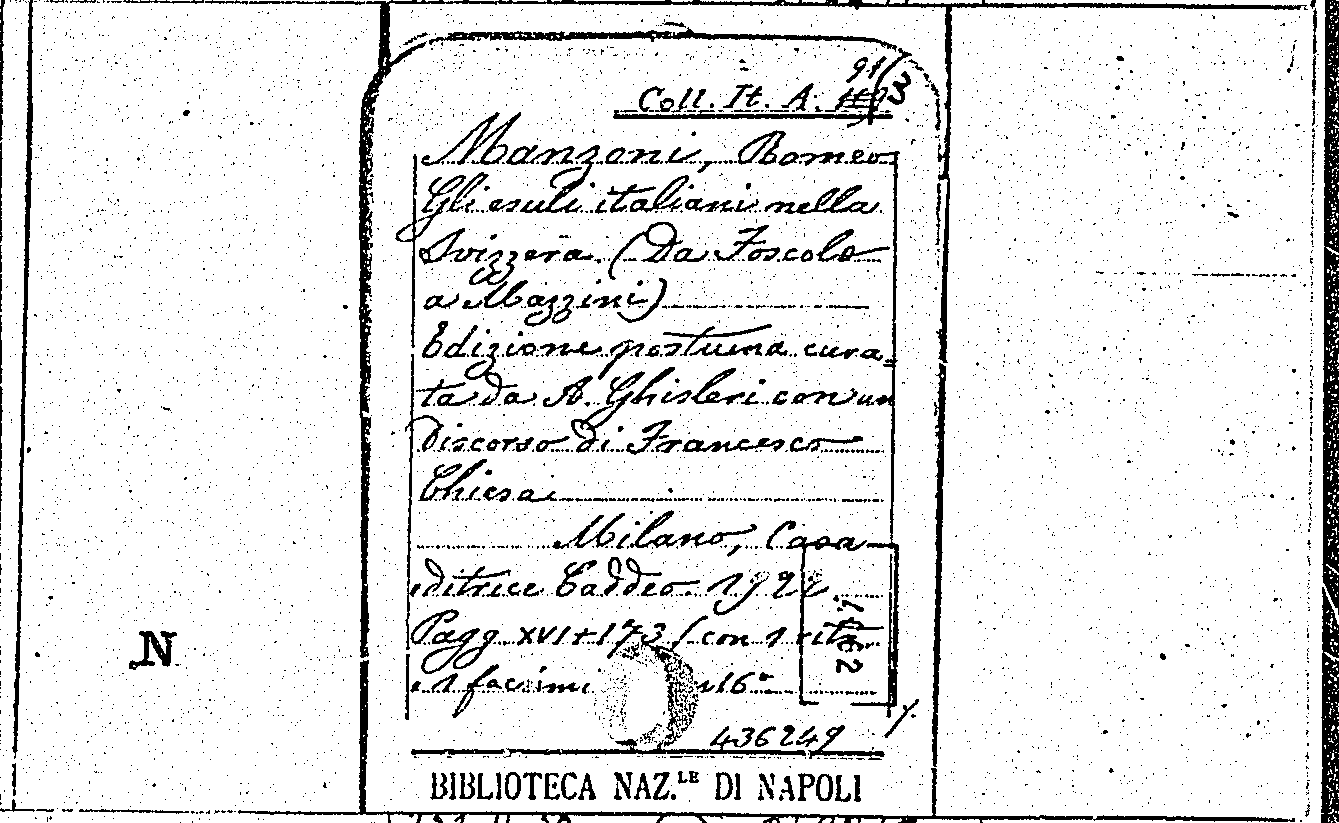 91(3
Coll. It. A.
Manzoni, Romeo
Gli esuli italiani nella
Svizzera. (Da Foscolo
a Mazzini)
Edizione postuma cura=
ta da A. Ghisleri con un
discorso di Francesco
Chiesa.
Milano, Casa
editrice Caddeo. 1922.
Pagg. XVI+173 (con 1 ritr.
e 1 facsimi 16°
N
436249
BIBLIOTECA NAZ.LE DI NAPOLI